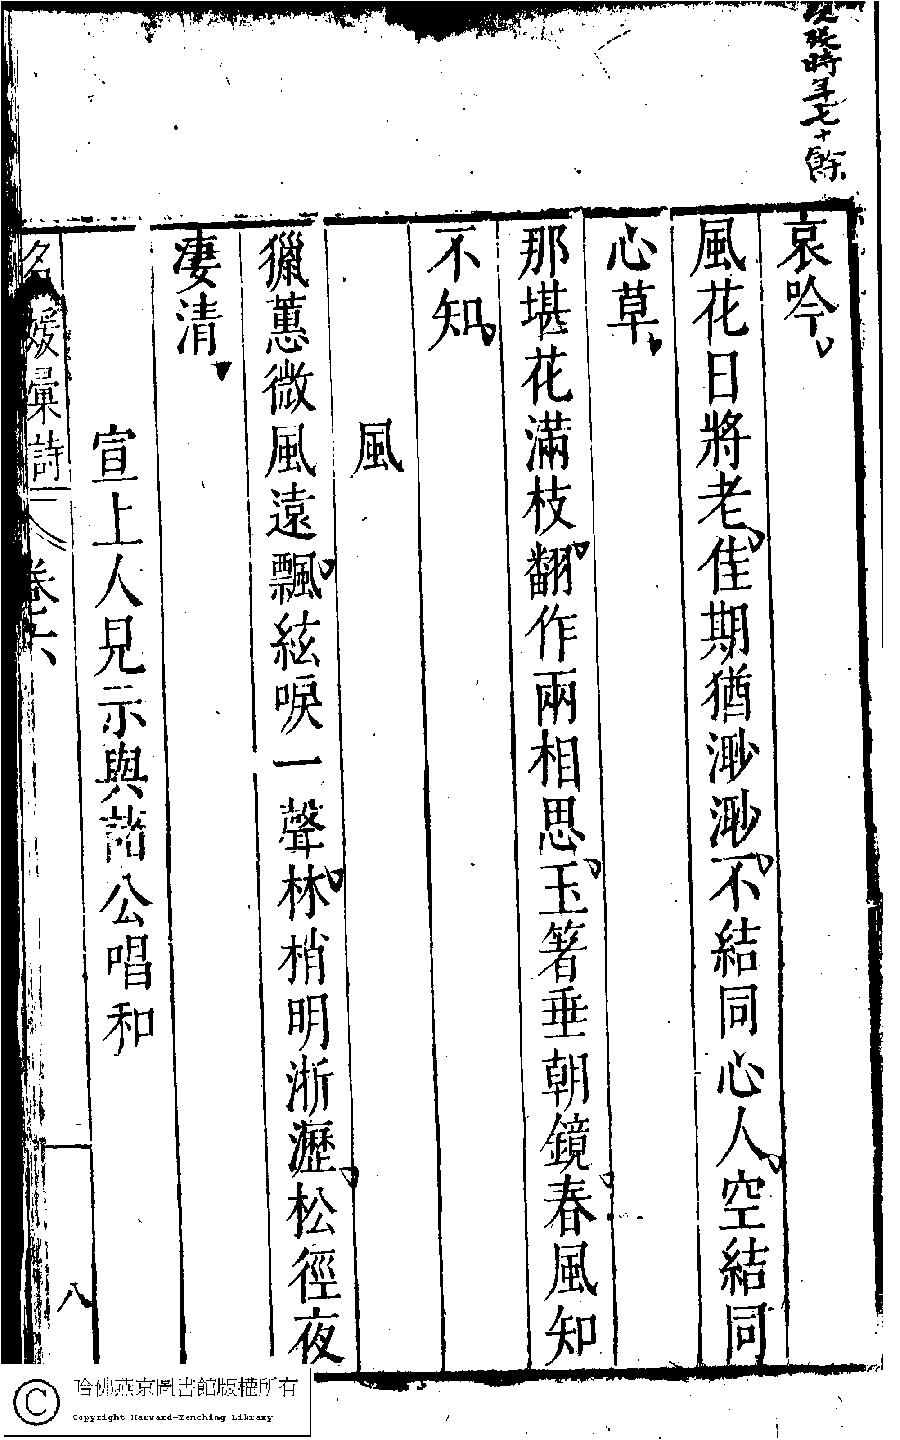 張時年七十餘
哀吟
風花日將老佳期猶渺渺不結同心人空結同
心草
那堪花滿枝翻作兩相思玉箸垂朝鏡春風知
不知
風
獵蕙微風遠飄絃唳一聲林梢明淅瀝松徑夜
淒清
宣上人見示與諸公唱和
名媛彙詩 卷六
八
哈佛燕京圖書館版權所有
Copyright Harvard-Yenching Library